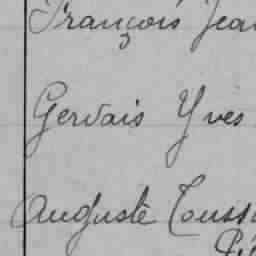 François Jean
Gervais Yves
Auguste Touss